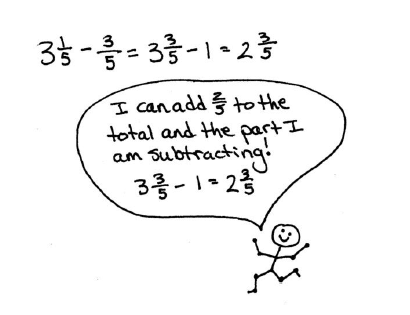 3 1/5 - 3/5 = 3 3/5 - 1 = 2 3/5
I can add 2/5 to the
total and the part I
am subtracting!
3 3/5 - 1 = 2 3/5